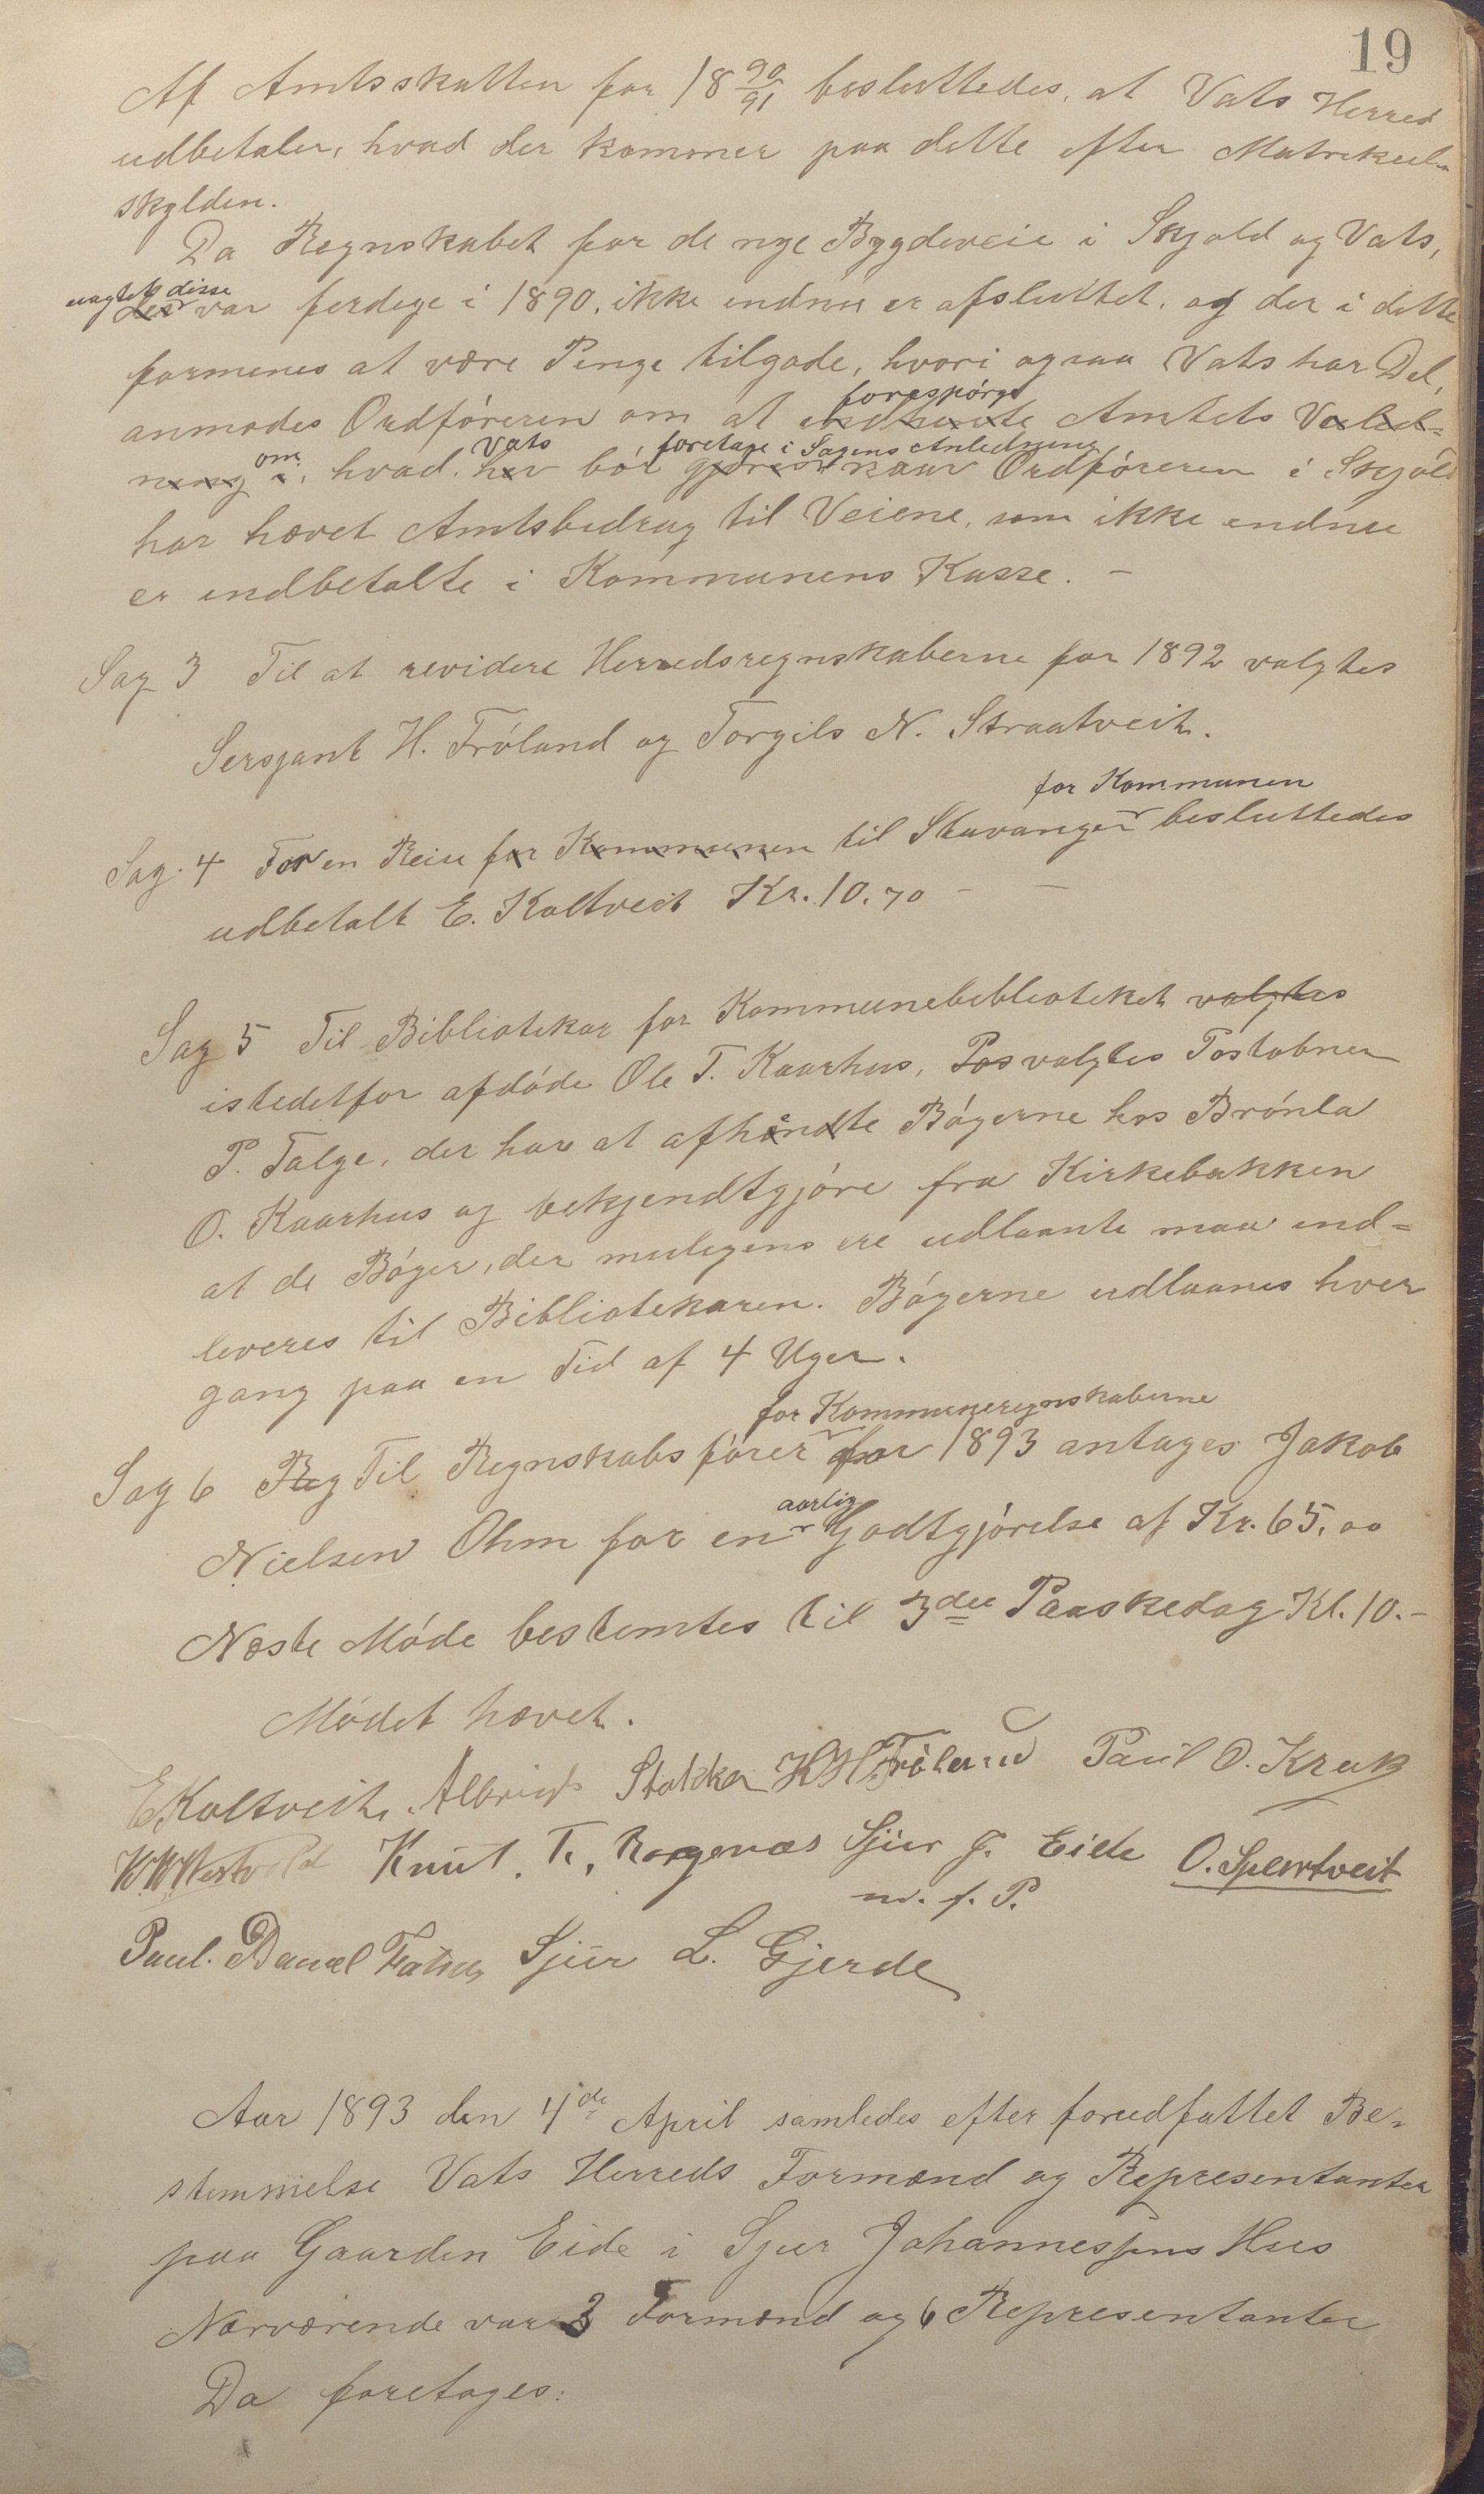 19
Af Amtsskatten for 18 90/91 besluttedes, at Vats Herred
udbetaler, hvad der kommer paa dette efter Matrikul-
skylden.
Da Regnskabet for de nye Bygdeveie i Skjold og Vats,
uagtet disse
der var ferdige i 1890, ikke endnu er afsluttet, og der i dette
formenes at være Penge tilgode, hvori ogsaa Vats har Del,
forespörge
anmodes Ordföreren om at indhente Amtets Veiled-
om Vats foretage i Sagens Anledning
ning i, hvad her bör gjöres, naar Ordföreren i Skjold
har hævet Amtsbidrag til Veiene, som ikke endnu
er indbetalte i Kommunens Kasse. -
Sag 3 Til at revidere Herredsregnskaberne for 1892 valgtes
Sersjant H. Fröland og Torgils N. Straatveit.
for Kommunen
Sag. 4 For en Reise for Kommunen til Stavanger besluttedes
udbetalt E. Kaltveit Kr. 10.70 - -
Sag 5 Til Bibliotekar for Kommunebiblioteket valgtes
istedetfor afdöde Ole T. Kaarhus, Pos valgtes Postaabner
P. Falge, der har at afhente Bögerne hos Brönla
O. Kaarhus og bekjendtgjöre fra Kirkebakken
at de Böger, der muligens ere udlaante maa ind-
leveres til Bibliotekaren. Bögerne udlaanes hver
gang paa en Tid af 4 Uger.
for Kommuneregnskaberne
Sag 6 Reg Til Regnskabsförer for 1893 antages Jakob
aarlig
Nielsen Ohm for en Godtgjörelse af Kr. 65.00
Næste Möde bestemtes til 3die Paaskedag Kl. 10.-
Mödet hævet.
E Kaltveit. Albrigt Stakka H H Fröland Paul O. Krak
Knut. T. Borgenæs Sjur J. Eide O. Spertveit
m. f. P.
Paul. Danæl Sjur L. Gjerde
Aar 1893 den 4de April samledes efter forudfattet Be-
stemmelse Vats Herreds Formænd og Representanter
paa Gaarden Eide i Sjur Johannesens Hus
Nærværende var 3 Formænd og 6 Representanter
Da foretages: